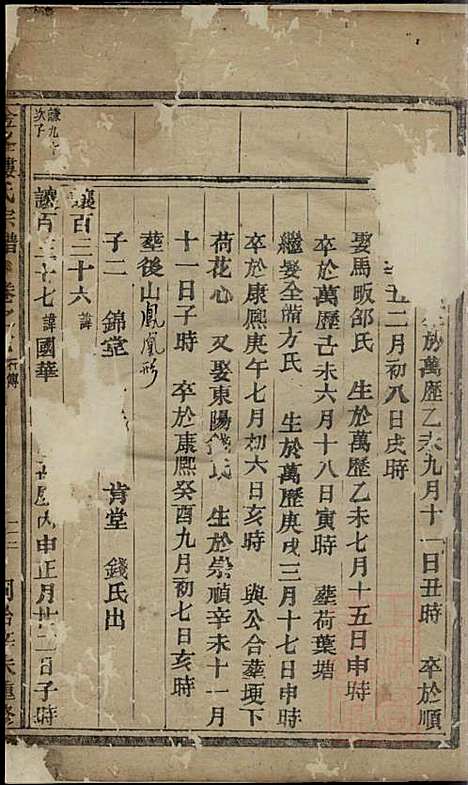 於萬歷乙未九月十一日丑時 卒於順
二月初八日戌時
娶馬畈郃氏 生於萬歷乙未七月十五日申時
卒於萬歷己未六月十八日寅時 葬荷葉塘
繼娶全蒲方氏 生於萬歷庚戌三月十七日申時
卒於康熙庚午七月初六日亥時 與公合葬埂下
荷花心 又娶東陽錢氏 生於崇順辛未十一月
十一日子時 卒於康熙癸酉九月初七日亥時
葬後山鳳凰形
子二 錦堂 肯堂 錢氏出
百三十六諱
謙九
次子
讓百三十七諱國華 申正月廿二日子時
氏宗譜
同治辛未重修